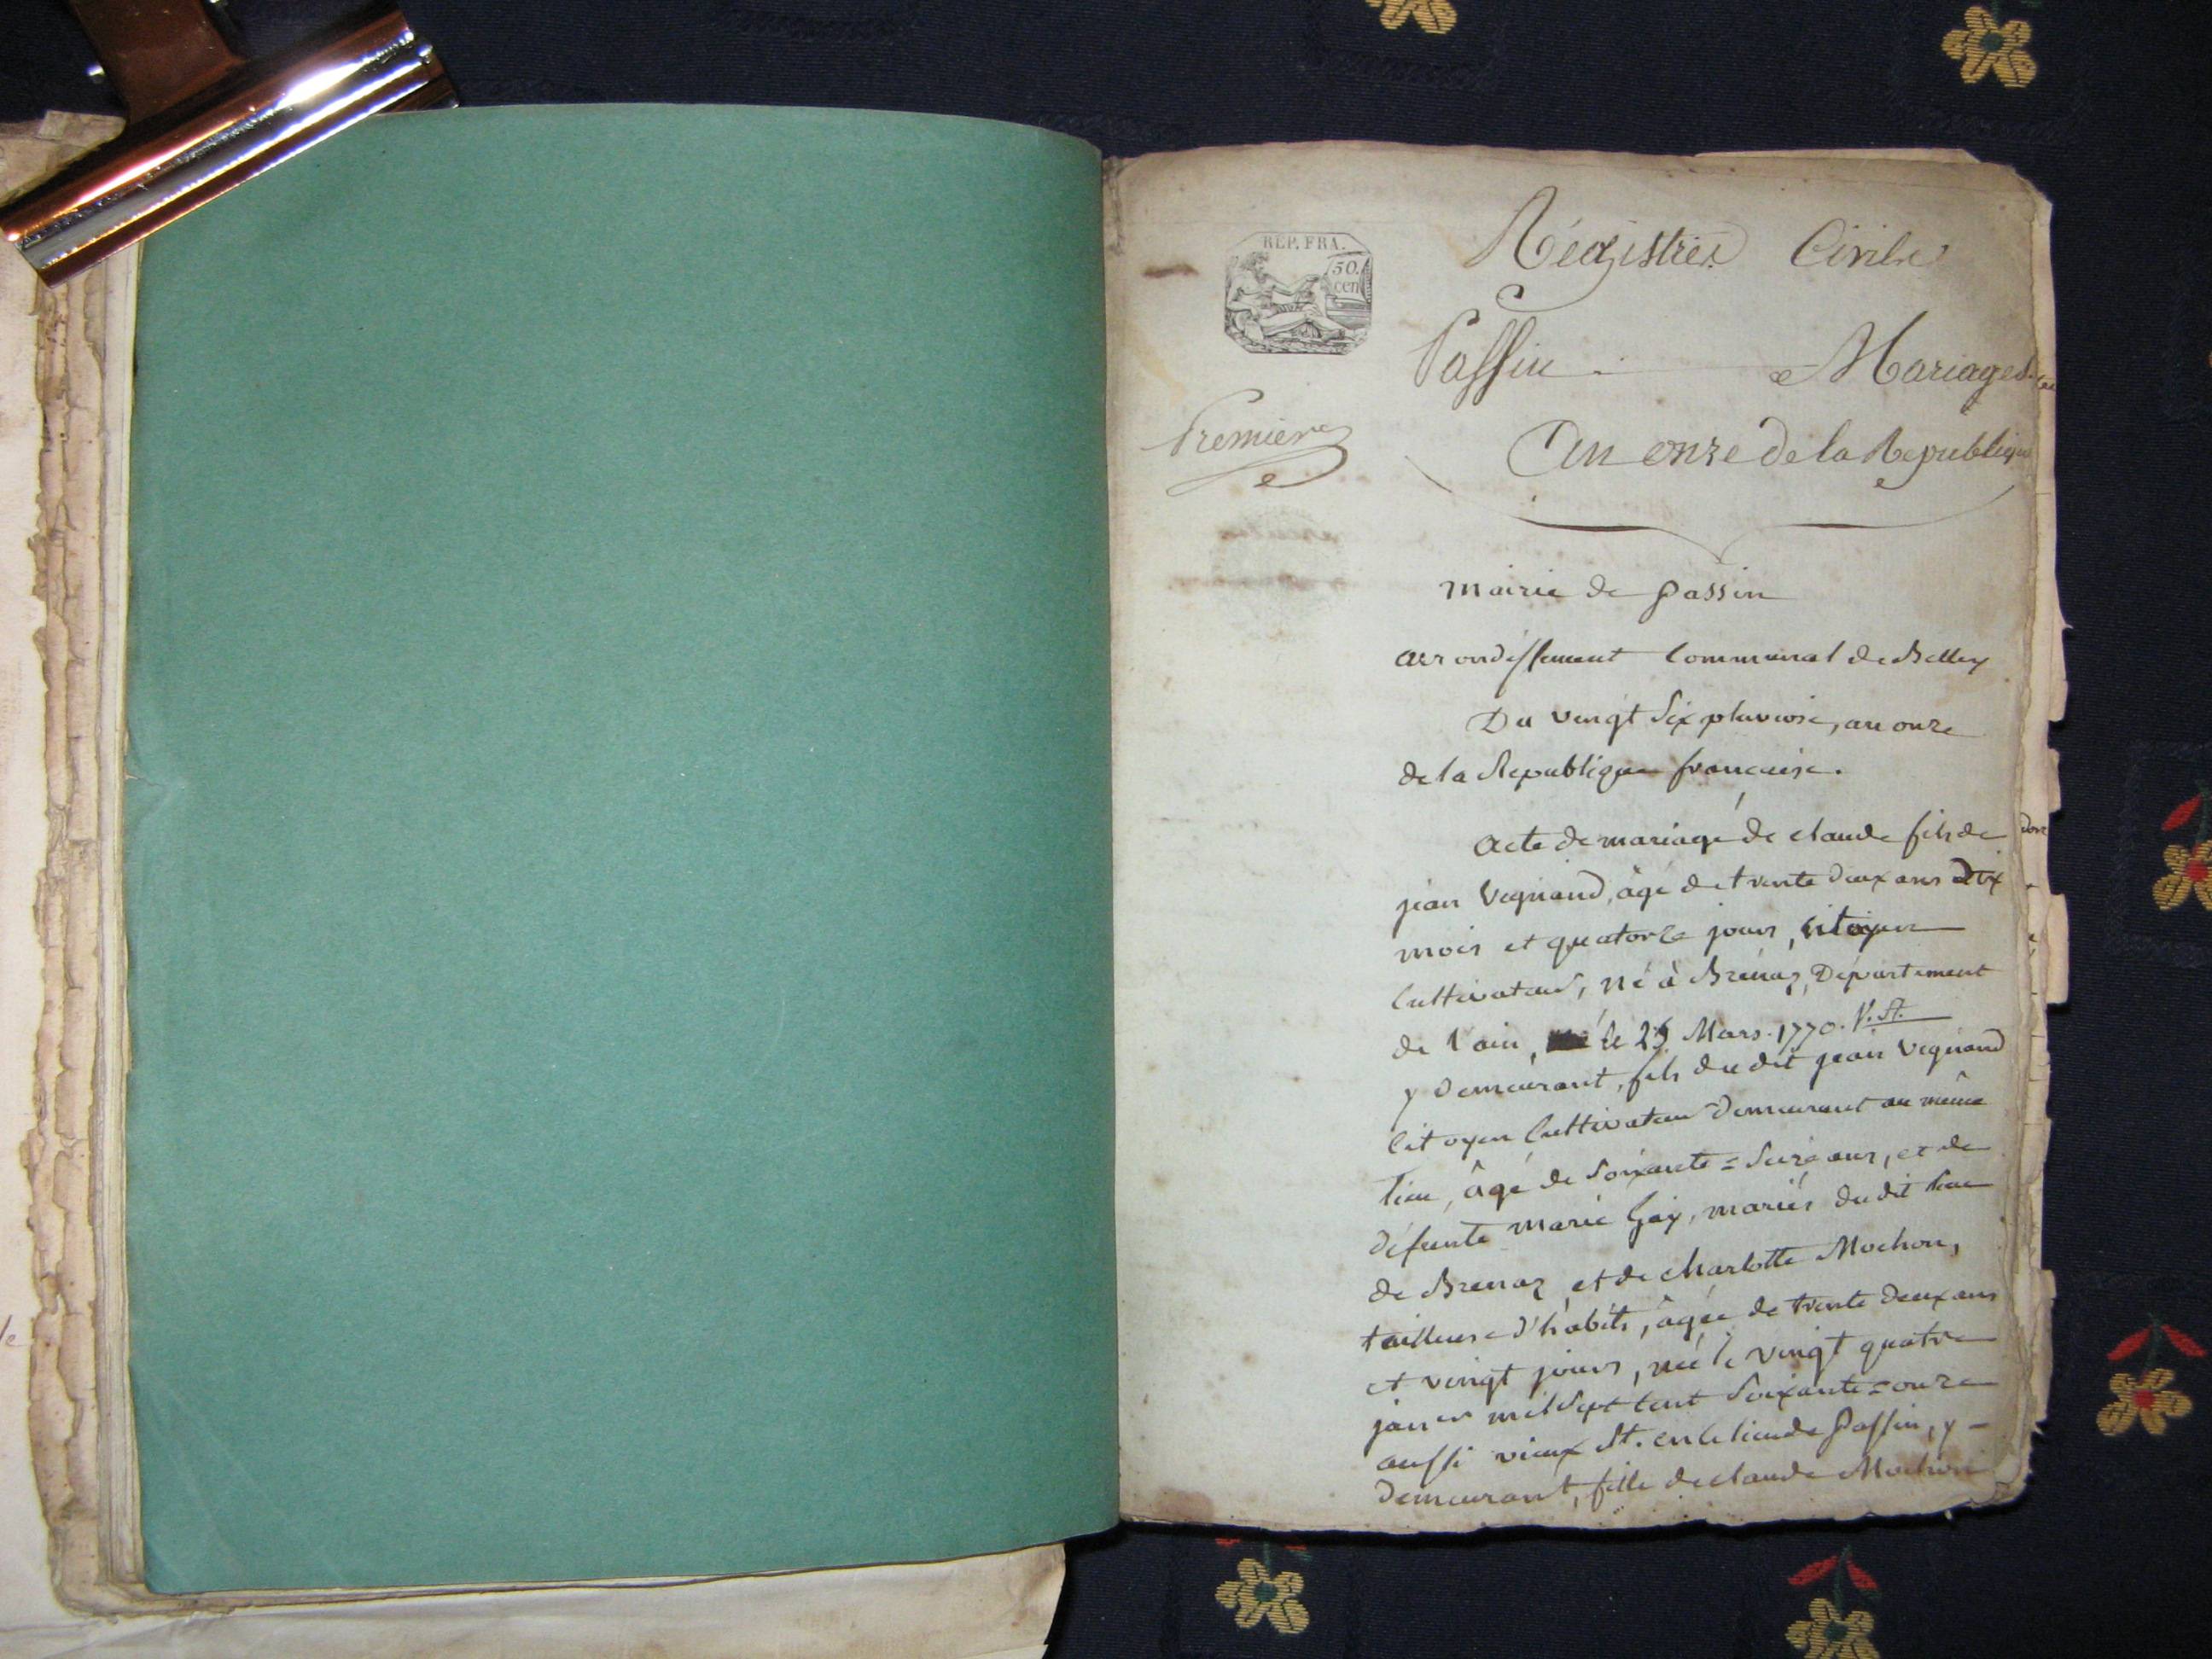 REP. FRA.
50.
cen
Régistres Civile
Passin - Mariages
Premiere
An onze de la Republique
mairie de passin
arrondissement Communal de Belley
Du vingt six pluviose, an onze
de la Republique francaise.
acte de mariage de claude fils de
jean Vegnand, âgé de trente deux ans Dix
mois et quatorze jours, citoyen
Cultivateur, né à Brénaz, Département
de l'ain, le 25 Mars. 1770. V. St.
y demeurant, fils du dit jean Vegnand
Citoyen Cultivateur demeurant au même
lieu, âgé de soixante = seize ans, et de
défunte marie Gay, mariés du dit lieu
de Brenaz, et de charlotte Mochon,
tailleuse d'habits, âgée de trente deux ans
et vingt jours, née le vingt quatre
janer mil sept cent soixante = onze
aussi vieux St. en le lieu de Passin, y -
demeurant, fille de claude Mochon